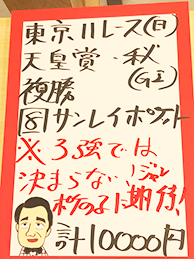 東京11レース(日)
天皇賞・秋
(GI)
複勝
⑧サンレイポケット
※3強では
決まらない
ジャンポケの子に期待!
計10000円